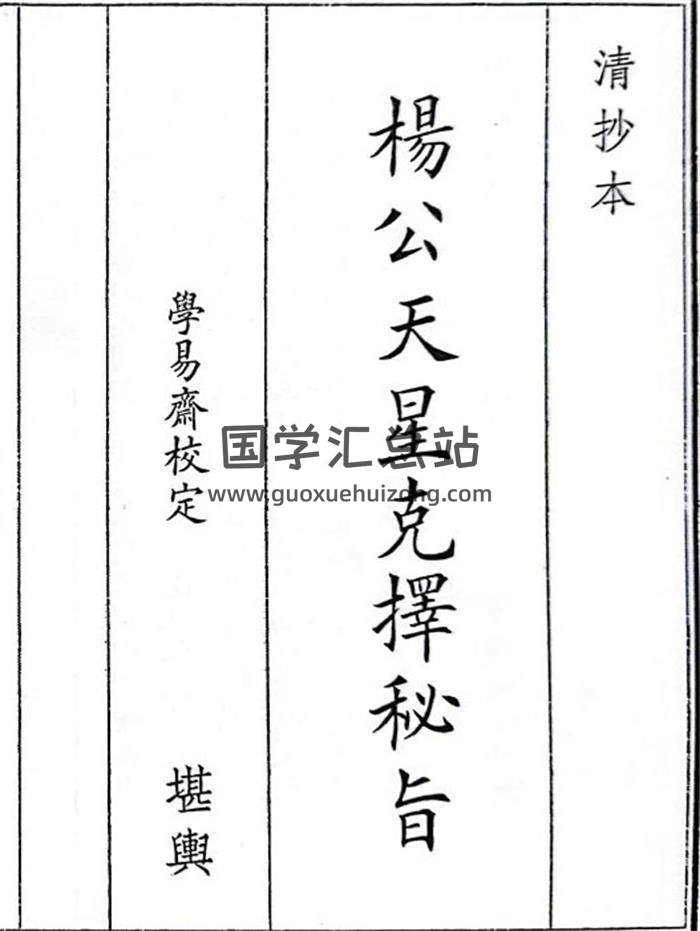 清抄本
楊公天星克擇秘旨
學易齋校定
堪輿
国学汇总站
www.guoxuehuizong.com